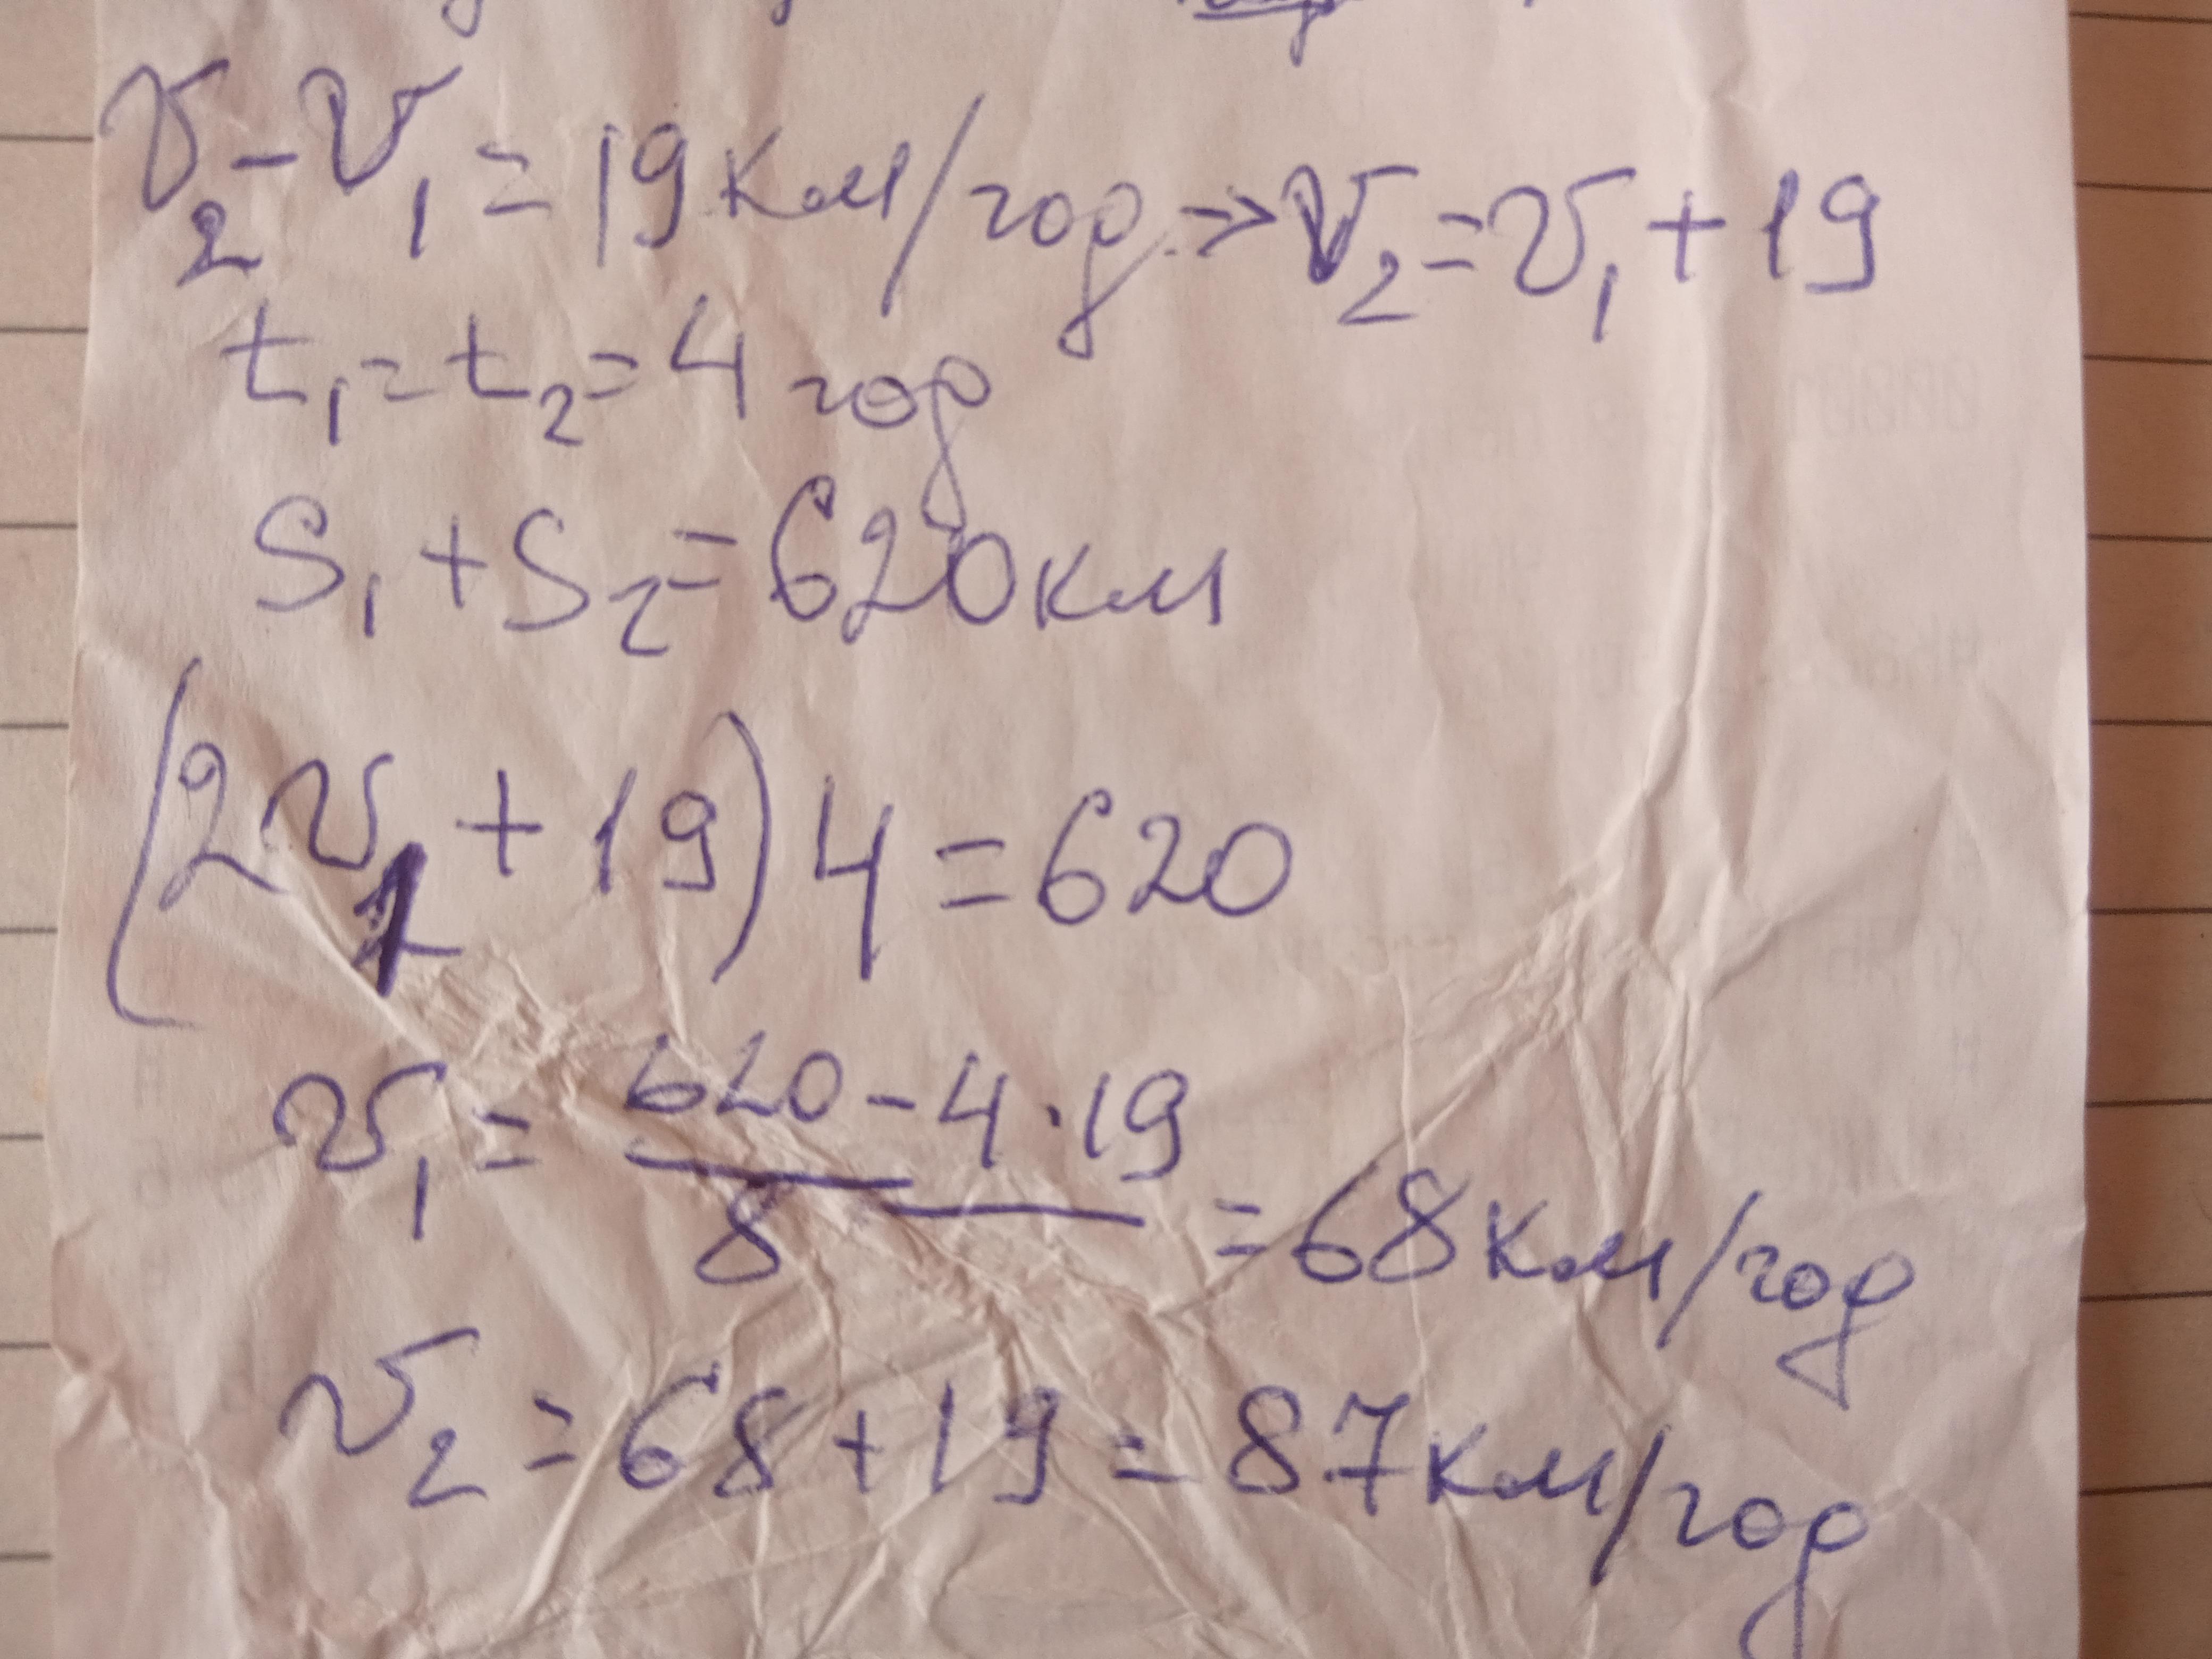 v₂ - v₁ = 19 км/год → v₂ = v₁ + 19
t₁ = t₂ = 4 год
S₁ + S₂ = 620 км
(2v₁ + 19) 4 = 620
v₁ = (620 - 4 · 19) / 8 = 68 км/год
v₂ = 68 + 19 = 87 км/год